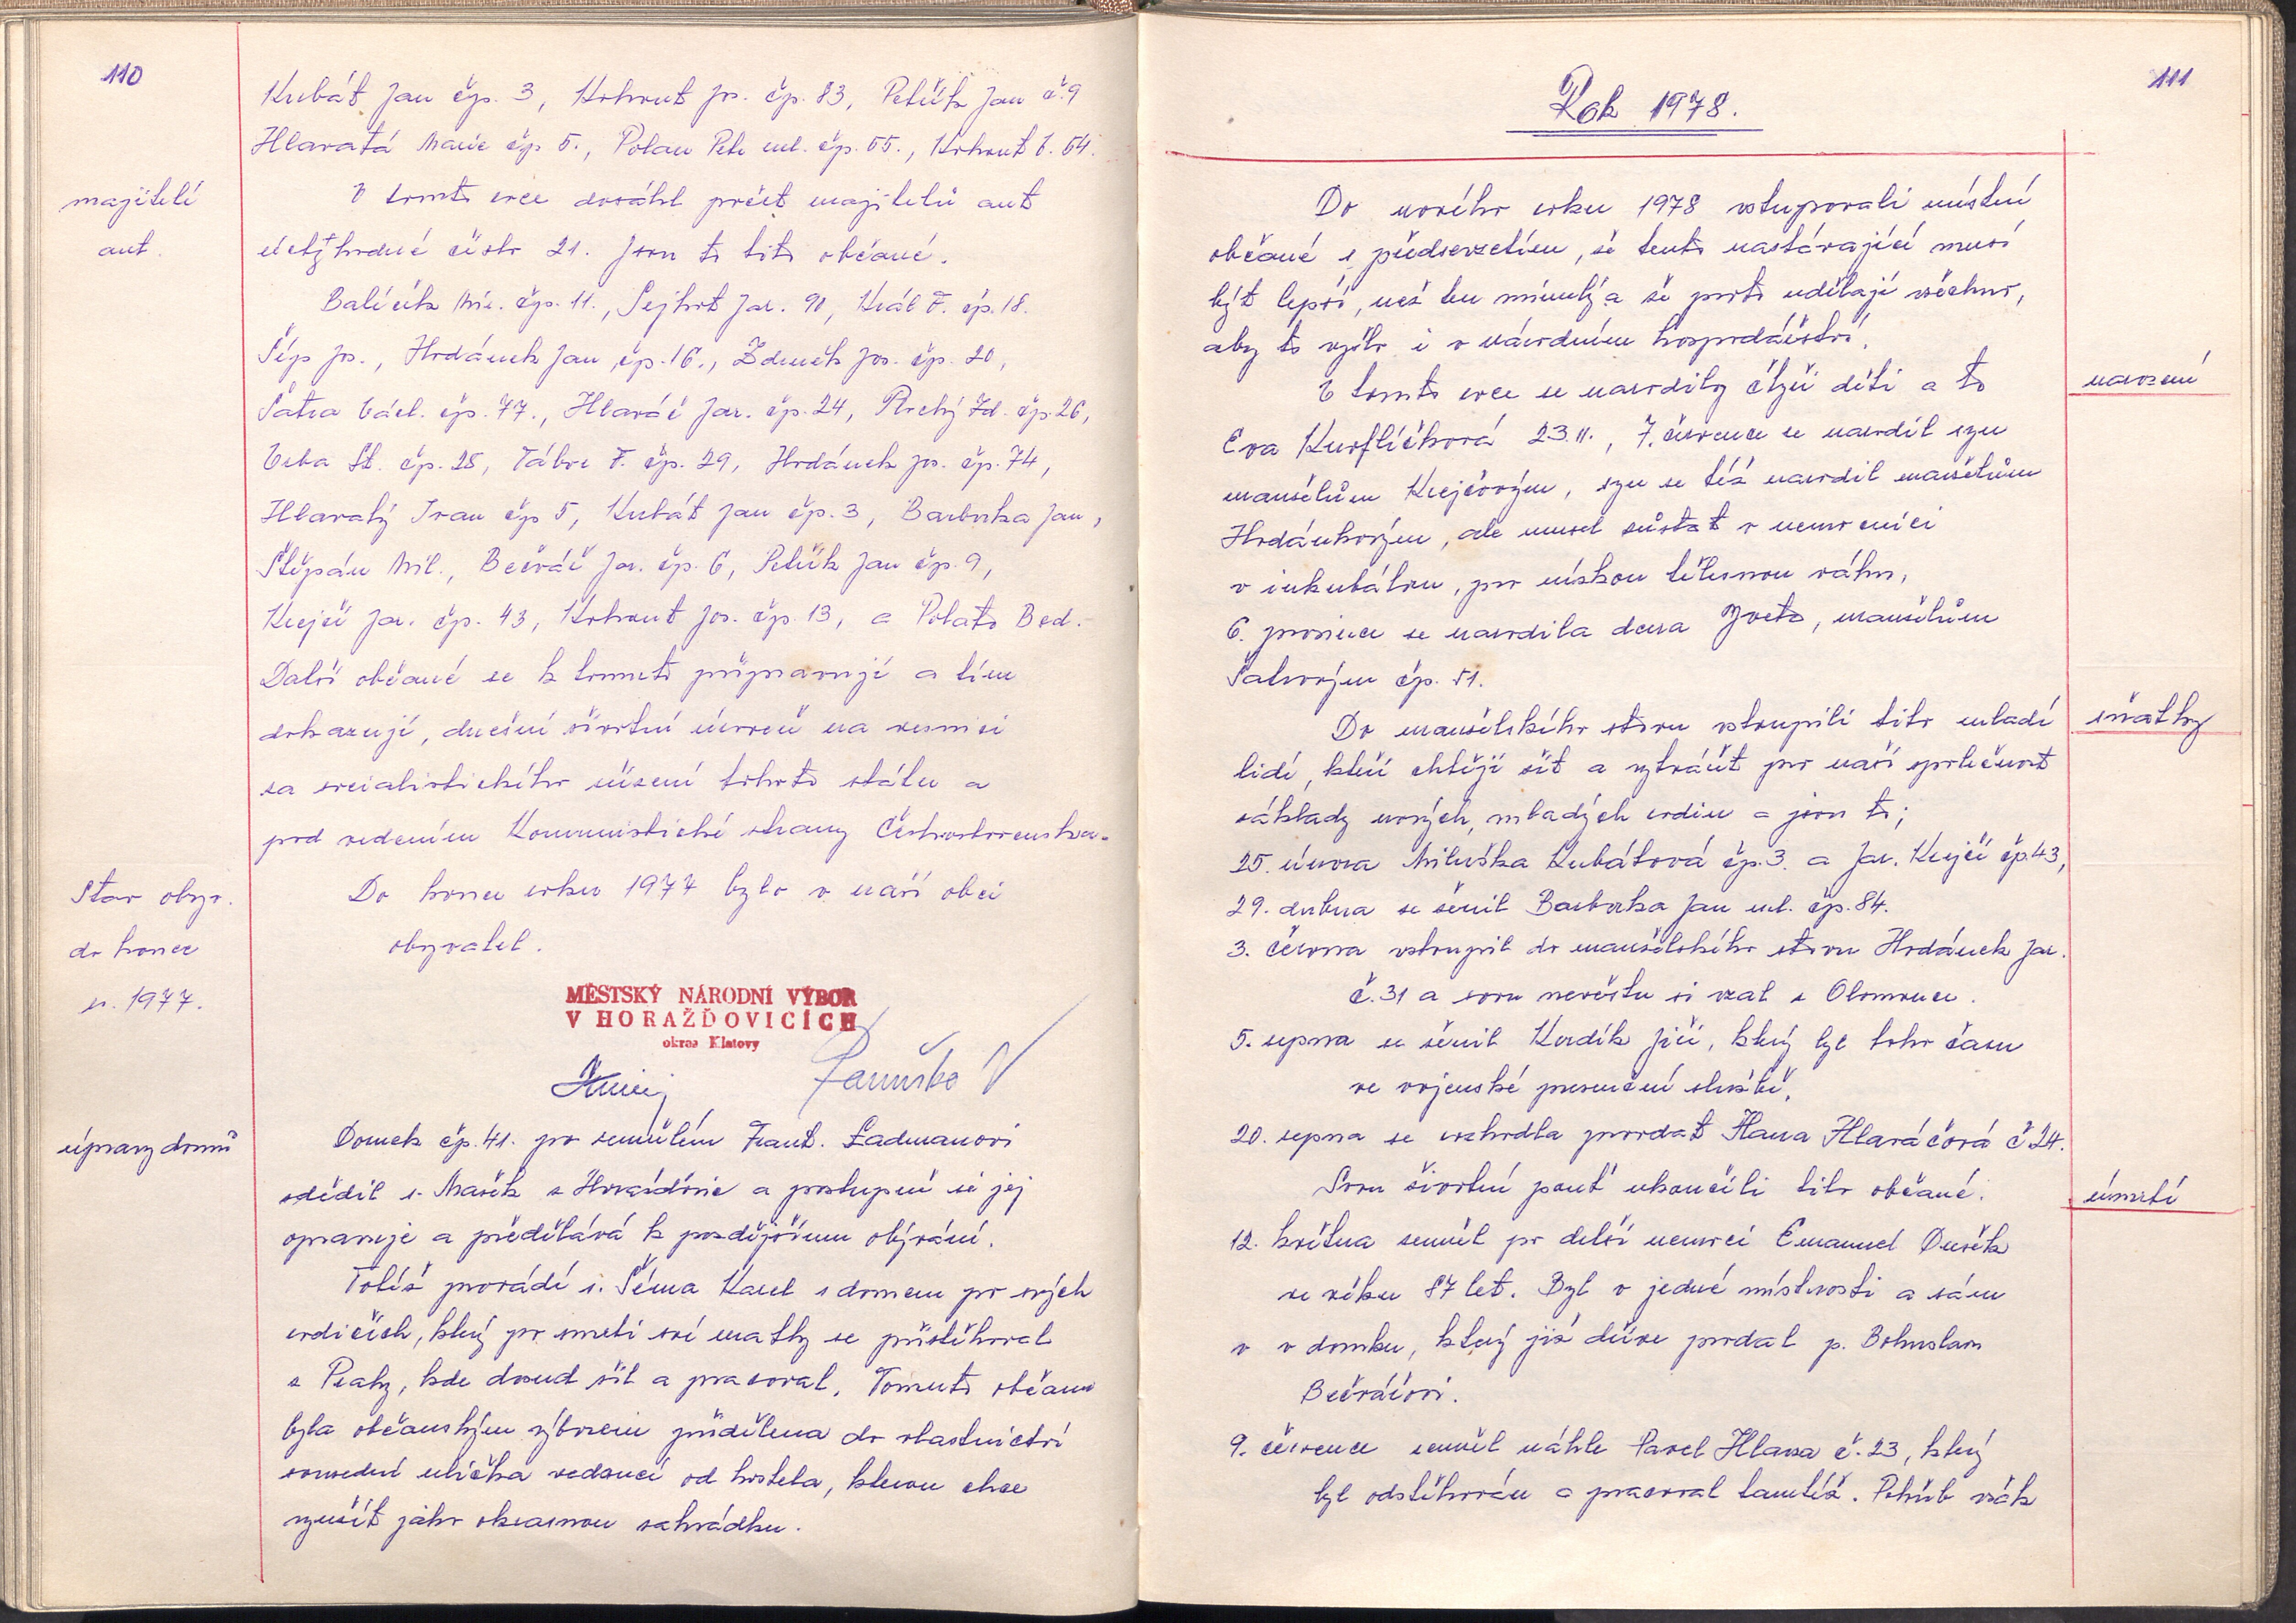 110
Kubát Jan čp. 3, Kohout Jos. čp. 83, Petřík Jan č.9
Hlavatá Marie čp. 5., Polan Petr ml. čp. 55., Kohout V. 54.
majitelé
aut.
V tomto roce dosáhl počet majitelů aut
úctyhodné číslo 21. Jsou to tito občané.
Balíčík Mir. čp. 11., Sejkot Jar. 90, Král F. čp. 18.
Šíp Jos., Hrdánek Jan čp. 16., Zdeněk Jos. čp. 20,
Šatra Václ. čp. 77., Hlaváč Jar. čp. 24, Plochý Zd. čp. 26,
Vrba St. čp. 28, Tábor F. čp. 29, Hrdánek Jos. čp. 74,
Hlavatý Ivan čp 5, Kubát Jan čp. 3, Barborka Jan,
Štěpán Mil., Bečvář Jar. čp. 6, Petřík Jan čp. 9,
Krejčí Jar. čp. 43, Kohout Jos. čp. 13, a Polata Bed.-
Další občané se k tomuto připravují a tím
dokazují, dnešní životní úroveň na vesnici
za socialistického zřízení tohoto státu a
pod vedením Komunistické strany Československa.
Stav obyv.
do konce
r. 1977.
Do konce roku 1977 bylo v naší obci
obyvatel.
MĚSTSKÝ NÁRODNÍ VÝBOR
V HORAŽĎOVICÍCH
okres Klatovy
úpravy domů
Domek čp. 41. po zemřelém Frant. Ladmanovi
zdědil s. Mašek z Horažďovic a postupně si jej
opravuje a předělává k pozdějšímu obývání.
Totéž provádí s. Šéma Karel s domem po svých
rodičích, který po smrti své matky se přistěhoval
z Prahy, kde dosud žil a pracoval. Tomuto občanu
byla občanským výborem přidělena do vlastnictví
sousední ulička vedoucí od kostela, kterou chce
využít jako okrasnou zahrádku.
111
Rok 1978.
Do nového roku 1978 vstupovali místní
občané s předsevzetím, že tento nastávající musí
být lepší, než ten minulý a že proto udělají všechno,
aby to vyšlo i v národním hospodářství.
narození
V tomto roce se narodily čtyři děti a to
Eva Kurflíčková 23.II., 7. července se narodil syn
manželům Krejčovým, syn se též narodil manželům
Hrdánkovým, ale musel zůstat v nemocnici
v inkubátoru, pro nízkou tělesnou váhu,
6. prosince se narodila dcera Iveta, manželům
Šatrovým čp. 51.
sňatky
Do manželského stavu vstoupili tito mladí
lidé, kteří chtějí žít a vytvářit pro naši společnost
základy nových, mladých rodin a jsou to;
25. února Miluška Kubátová čp. 3. a Jar. Krejčí čp. 43,
29. dubna se ženil Barborka Jan ml. čp. 84.
3. června vstoupil do manželského stavu Hrdánek Jar.
č. 31 a svou nevěstu si vzal z Olomouce.
5. srpna se ženil Kordík Jiří, který byl toho času
ve vojenské presenční službě.
20. srpna se rozhodla provdat Hana Hlaváčová č 24.
úmrtí
Svou životní pouť ukončili tito občané.
12. května zemřel po delší nemoci Emanuel Dušek
ve věku 87 let. Byl v jedné místnosti a sám
v v domku, který již dříve prodal p. Bohuslavu
Bečvářovi.
9. července zemřel náhle Pavel Hlava č. 23, který
byl odstěhován a pracoval tamtéž. Pohřeb však